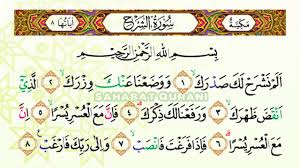 مكية سورة الشرح اياتها ٨
بِسْمِ اللهِ الرَّحْمٰنِ الرَّحِيْمِ
اَلَمْ نَشْرَحْ لَكَ صَدْرَكَ ١ وَوَضَعْنَا عَنْكَ وِزْرَكَ ٢ الَّذِيْٓ
اَنْقَضَ ظَهْرَكَ ٣ وَرَفَعْنَا لَكَ ذِكْرَكَ ٤ فَاِنَّ مَعَ الْعُسْرِ يُسْرًا ٥ اِنَّ
مَعَ الْعُسْرِ يُسْرًا ٦ فَاِذَا فَرَغْتَ فَانْصَبْ ٧ وَاِلٰى رَبِّكَ فَارْغَبْ ٨
SAHABAT QURANI